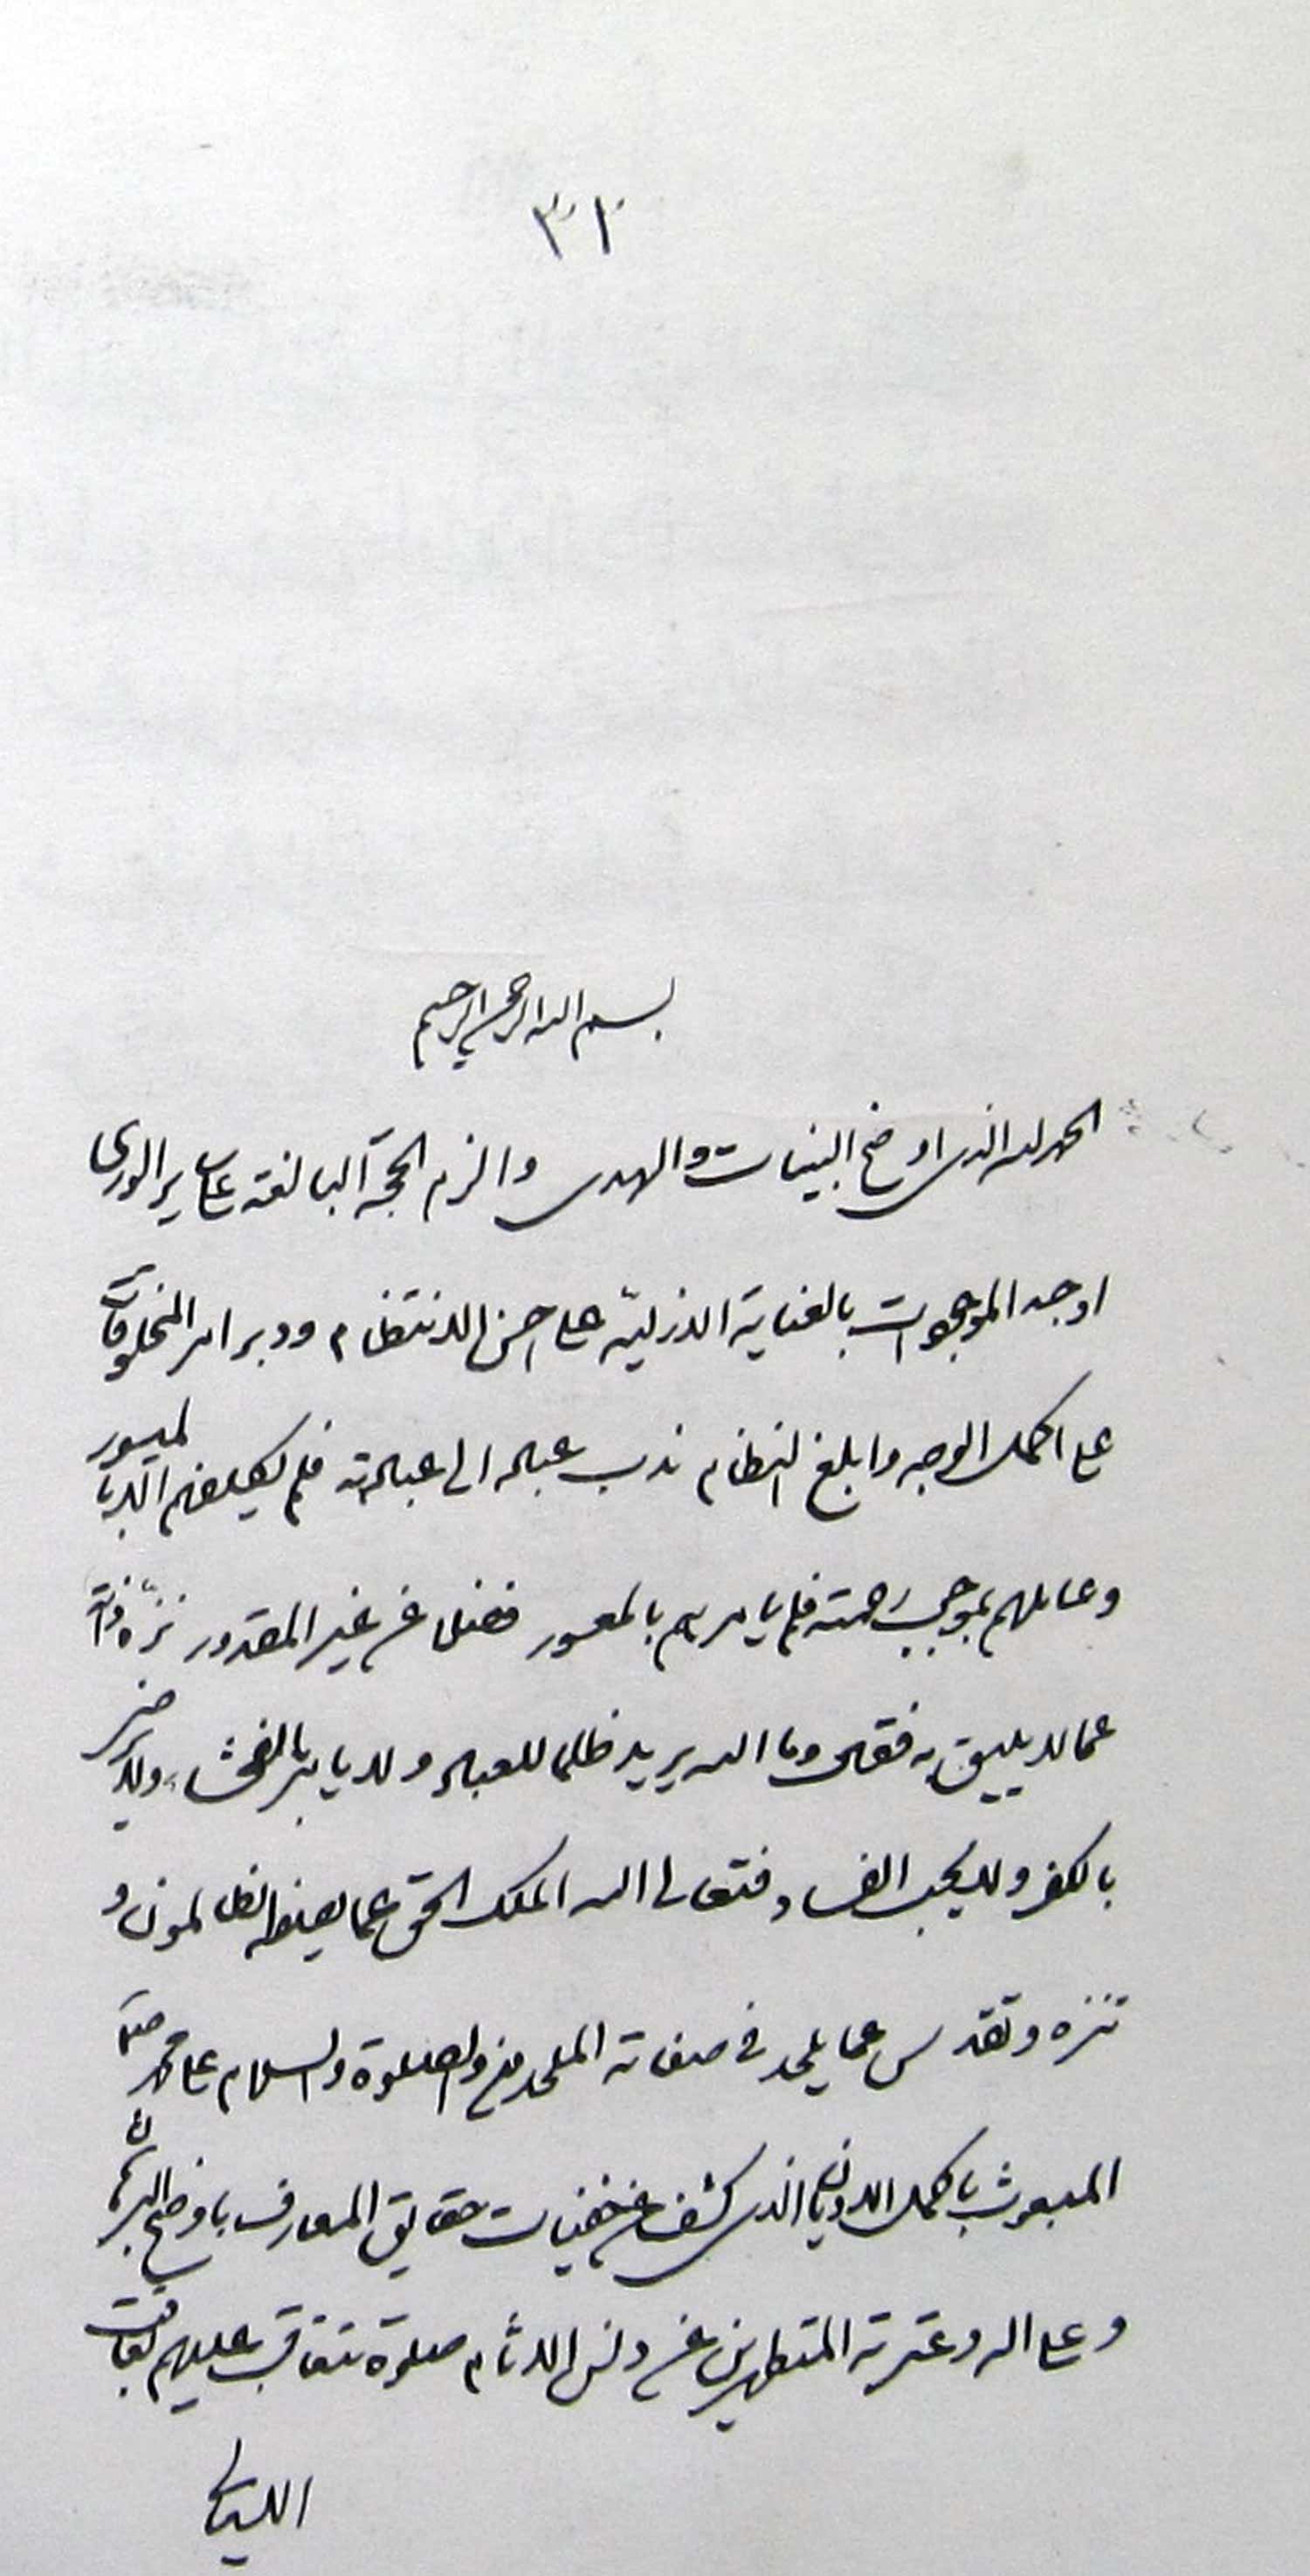 ٣١
بسم الله الرحمن الرحيم
الحمد لله الذى اوضح البينات والهدى والزم الحجة البالغة على ساير الورى
اوجد الموجودات بالعناية الازلية على احسن الانتظام ودبر امر المخلوقات
على اكمل الوجه وابلغ النظام ندب عباده الى عبادته فلم يكلفهم الا بالميسور
وعاملهم بموجب رحمته فلم يامرهم بالمعسور فضلا عن غير المقدور نزه ذاته
عما لا يليق به فقال وما الله يريد ظلما للعباد ولا يامر بالفحشاء ولا يرضى
بالكفر ولا يحب الفساد فتعالى الله الملك الحق عما الظالمون و
تنزه وتقدس عما يلحد فى صفاته الملحدون والصلوة والسلام على محمد
المبعوث باكمل الاديان الذى كشف عن خفيات حقايق المعارف باوضح البرهان
وعلى اله وعترته المتطهرين عن دنس الاثام صلوة تتعاقب عليهم تعاقب
الليالى